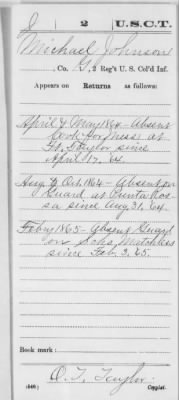 J 2 U.S.C.T.
Michael Johnson
Co. G, 2 Reg't U. S. Col'd Inf.
Appears on Returns as follows:
April & May 1864 - Absent
Cook for Mess at
Ft. Taylor since
April 17, 64.
Aug. to Oct. 1864 - Absent on
Guard at Punta Ras
sa since Aug 31, 64.
Feby 1865 - Absent Guard
on Schr. Matchless
since Feb. 3, 65.
Book mark:
(546) O. T. Taylor
Copyist.